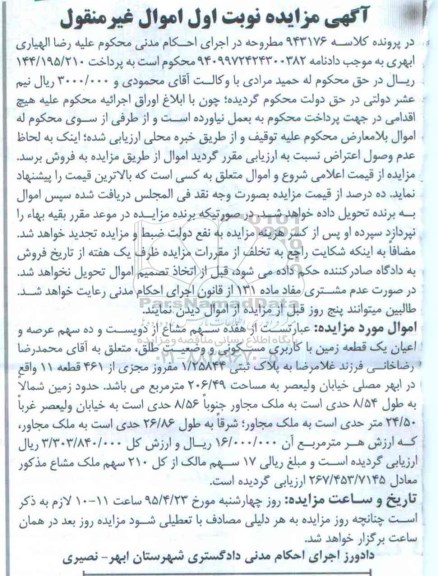 آگهی مزایده نوبت اول اموال غیرمنقول
در پرونده کلاسه ۹۴۳۱۷۶ مطروحه در اجرای احکام مدنی محکوم علیه رضا الهیاری
ابهری به موجب دادنامه ۹۴۰۹۹۷۲۴۲۴۳۰۰۳۸۲ محکوم است به پرداخت ۱۴۴/۱۹۵/۲۱۰
ریال در حق محکوم له حمید مرادی با وکالت آقای محمودی و ۳۰۰۰/۰۰۰ ریال نیم
عشر دولتی در حق دولت محکوم گردیده؛ چون با ابلاغ اوراق اجرائیه محکوم علیه هیچ
اقدامی در جهت پرداخت محکوم به بعمل نیاورده است و از طرفی از سوی محکوم له
اموال بلامعارض محکوم علیه توقیف و از طریق خبره محلی ارزیابی شده؛ اینک به لحاظ
عدم وصول اعتراض نسبت به ارزیابی مقرر گردید اموال از طریق مزایده به فروش برسد.
مزایده از قیمت اعلامی شروع و اموال متعلق به کسی است که بالاترین قیمت را پیشنهاد
نماید. ده درصد از قیمت مزایده بصورت وجه نقد فی المجلس دریافت شده سپس اموال
به برنده تحویل داده خواهد شد. در صورتیکه برنده مزایده در موعد مقرر بقیه بهاء را
نپردازد سپرده او پس از کسر هزینه مزایده به نفع دولت ضبط و مزایده تجدید خواهد شد.
مضافاً به اینکه شکایت راجع به تخلف از مقررات مزایده ظرف یک هفته از تاریخ فروش
به دادگاه صادرکننده حکم داده می شود، قبل از اتخاذ تصمیم اموال تحویل نخواهد شد.
در صورت عدم مشتری مفاد ماده ۱۳۱ از قانون اجرای احکام مدنی رعایت خواهد شد.
طالبین میتوانند پنج روز قبل از مزایده از اموال دیدن نمایند.
اموال مورد مزایده: عبارتست از هفده سهم مشاع از دویست و ده سهم عرصه و
اعیان یک قطعه زمین با کاربری مسکونی و وضعیت طلق، متعلق به آقای محمدرضا
رضاخانی فرزند غلامرضا به پلاک ثبتی ۱/۲۵۸۴۴ مفروز مجزی از ۴۶۱ قطعه ۱۱ واقع
در ابهر مصلی خیابان ولیعصر به مساحت ۲۰۶/۴۹ مترمربع می باشد. حدود زمین شمالاً
به طول ۸/۵۴ حدی است به ملک مجاور جنوباً ۸/۵۶ حدی است به خیابان ولیعصر غرباً
۲۴/۵۰ متر حدی است به ملک مجاور؛ شرقاً به طول ۲۶/۸۶ حدی است به ملک مجاور،
که ارزش هر مترمربع آن ۱۶/۰۰۰/۰۰۰ ریال و ارزش کل ۳/۳۰۳/۸۴۰/۰۰۰ ریال
ارزیابی گردیده است و مبلغ ریالی ۱۷ سهم مالک از کل ۲۱۰ سهم ملک مشاع مذکور
معادل ۲۶۷/۴۵۳/۷۱۴۵ ارزیابی گردیده است.
تاریخ و ساعت مزایده: روز چهارشنبه مورخ ۹۵/۴/۲۳ ساعت ۱۱-۱۰ لازم به ذکر
است چنانچه روز مزایده به هر دلیلی مصادف با تعطیلی شود مزایده روز بعد در همان
ساعت برگزار خواهد شد.
دادورز اجرای احکام مدنی دادگستری شهرستان ابهر- نصیری